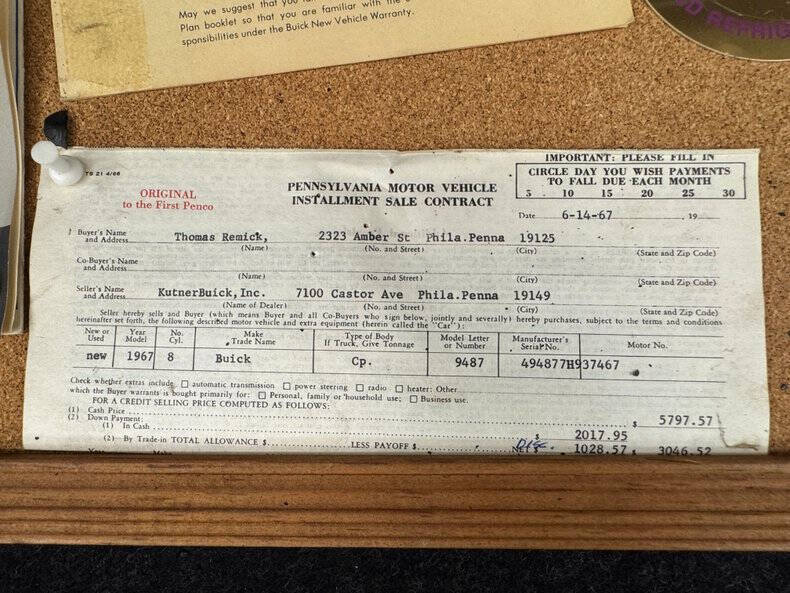 May we suggest that you
Plan booklet so that you are familiar with the
sponsibilities under the Buick New Vehicle Warranty.
TS 21 4/66
ORIGINAL
to the First Penco
PENNSYLVANIA MOTOR VEHICLE
INSTALLMENT SALE CONTRACT
IMPORTANT: PLEASE FILL IN
CIRCLE DAY YOU WISH PAYMENTS
TO FALL DUE EACH MONTH
5 10 15 20 25 30
Date 6-14-67 , 19
Buyer's Name
and Address Thomas Remick, 2323 Amber St Phila.Penna 19125
(Name) (No. and Street) (City) (State and Zip Code)
Co-Buyer's Name
and Address
(Name) (No. and Street) (City) (State and Zip Code)
Seller's Name
and Address KutnerBuick,Inc. 7100 Castor Ave Phila.Penna 19149
(Name of Dealer) (No. and Street) (City) (State and Zip Code)
Seller hereby sells and Buyer (which means Buyer and all Co-Buyers who sign below, jointly and severally) hereby purchases, subject to the terms and conditions
hereinafter set forth, the following described motor vehicle and extra equipment (herein called the "Car"):
New or Used Year Model No. Cyl. Make Trade Name Type of Body If Truck, Give Tonnage Model Letter or Number Manufacturer's Serial No. Motor No.
new 1967 8 Buick Cp. 9487 494877H937467
Check whether extras include ☐ automatic transmission ☐ power steering ☐ radio ☐ heater: Other
which the Buyer warrants is bought primarily for: ☐ Personal, family or household use; ☐ Business use.
FOR A CREDIT SELLING PRICE COMPUTED AS FOLLOWS:
(1) Cash Price $ 5797.57
(2) Down Payment:
(1) In Cash $ 2017.95
(2) By Trade-in TOTAL ALLOWANCE $ LESS PAYOFF $ NET $ 1028.57 $ 3046.52